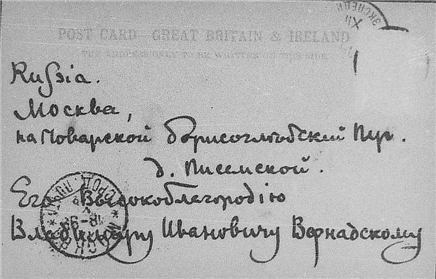 POST CARD GREAT BRITAIN & IRELAND
THE ADDRESS ONLY TO BE WRITTEN ON THIS SIDE
Russia.
Москва,
на Поварской Борисоглѣбский Пер.
д. Писемской.
Его Высокоблагородію
Владиміру Ивановичу Вернадскому